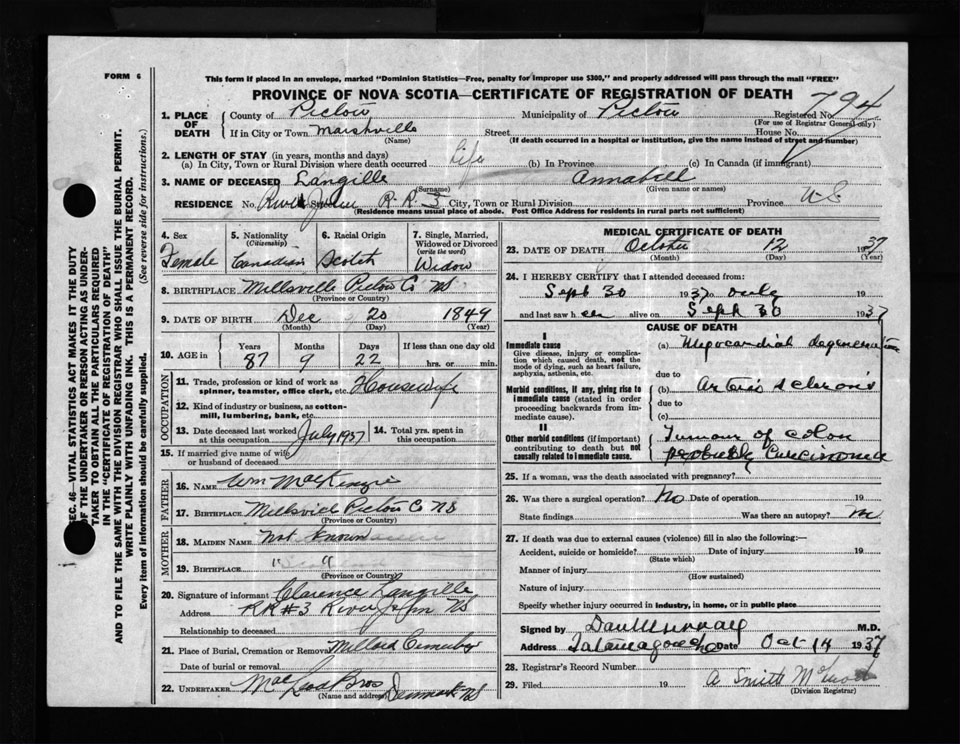 FORM 6
This form if placed in an envelope, marked "Dominion Statistics—Free, penalty for improper use $300," and properly addressed will pass through the mail "FREE"
PROVINCE OF NOVA SCOTIA—CERTIFICATE OF REGISTRATION OF DEATH
794
1. PLACE OF DEATH County of Pictou Municipality of Pictou Registered No.
(For use of Registrar General only)
If in City or Town Marshville Street House No.
(Name) (If death occurred in a hospital or institution, give the name instead of street and number)
2. LENGTH OF STAY (in years, months and days)
(a) In City, Town or Rural Division where death occurred life (b) In Province (c) In Canada (if immigrant)
3. NAME OF DECEASED Langille Annabell
(Surname) (Given name or names)
RESIDENCE No. River John Street R.R. 3 City, Town or Rural Division Province N S
(Residence means usual place of abode. Post Office Address for residents in rural parts not sufficient)
4. Sex Female
5. Nationality (Citizenship) Canadian
6. Racial Origin Scotch
7. Single, Married, Widowed or Divorced (write the word) Widow
8. BIRTHPLACE Millsville Pictou Co NS
(Province or Country)
9. DATE OF BIRTH Dec 20 1849
(Month) (Day) (Year)
10. AGE in Years Months Days If less than one day old
87 9 22 hrs. or min.
OCCUPATION
11. Trade, profession or kind of work as spinner, teamster, office clerk, etc. Housewife
12. Kind of industry or business, as cotton-mill, lumbering, bank, etc.
13. Date deceased last worked at this occupation July 1937
14. Total yrs. spent in this occupation
15. If married give name of wife or husband of deceased
FATHER
16. NAME Wm MacKenzie
17. BIRTHPLACE Millsville Pictou Co NS
(Province or Country)
MOTHER
18. MAIDEN NAME Not known
19. BIRTHPLACE " "
(Province or Country)
20. Signature of informant Clarence Langille
Address RR #3 River John NS
Relationship to deceased
21. Place of Burial, Cremation or Removal Millard Cemetery
Date of burial or removal
22. UNDERTAKER MacLeod Bros Denmark NS
(Name and address)
MEDICAL CERTIFICATE OF DEATH
23. DATE OF DEATH October 12 1937
(Month) (Day) (Year)
24. I HEREBY CERTIFY that I attended deceased from:
Sept 30 1937 to only 19
and last saw her alive on Sept 30 1937
CAUSE OF DEATH
I
Immediate cause
Give disease, injury or complication which caused death, not the mode of dying, such as heart failure, asphyxia, asthenia, etc.
(a) Myocardial degeneration
due to
Morbid conditions, if any, giving rise to immediate cause (stated in order proceeding backwards from immediate cause).
(b) Arterio sclerosis
due to
(c)
II
Other morbid conditions (if important) contributing to death but not causally related to immediate cause.
Tumour of colon
probably Carcinoma
25. If a woman, was the death associated with pregnancy?
26. Was there a surgical operation? No Date of operation 19
State findings Was there an autopsy? No
27. If death was due to external causes (violence) fill in also the following:—
Accident, suicide or homicide? Date of injury 19
(State which)
Manner of injury
(How sustained)
Nature of injury
Specify whether injury occurred in industry, in home, or in public place
Signed by Dan Murray M.D.
Address Tatamagouche Date Oct 14 1937
28. Registrar's Record Number
29. Filed 19 A Smith
(Division Registrar)
SEC. 46—VITAL STATISTICS ACT MAKES IT THE DUTY
OF THE UNDERTAKER OR PERSON ACTING AS UNDER-
TAKER TO OBTAIN ALL THE PARTICULARS REQUIRED
IN THE "CERTIFICATE OF REGISTRATION OF DEATH"
AND TO FILE THE SAME WITH THE DIVISION REGISTRAR WHO SHALL ISSUE THE BURIAL PERMIT.
WRITE PLAINLY WITH UNFADING INK. THIS IS A PERMANENT RECORD.
Every item of information should be carefully supplied. (See reverse side for instructions.)